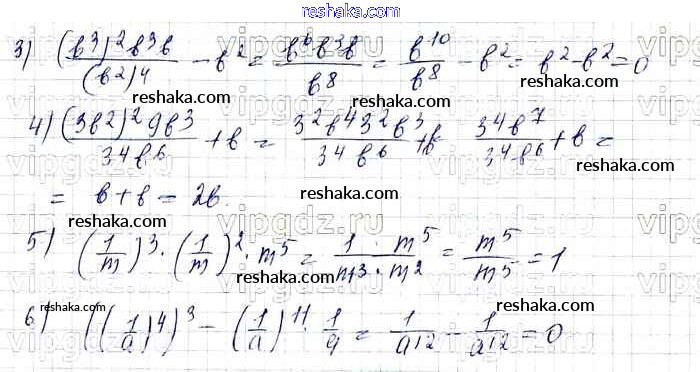 reshaka.com
3) (b³)²b³b/(b²)⁴ - b² = b⁶b³b/b⁸ = b¹⁰/b⁸ - b² = b² - b² = 0
reshaka.com reshaka.com
4) (3b2)²9b³/3⁴b⁶ + b = 3²b⁴3²b³/3⁴b⁶ + b 3⁴b⁷/3⁴b⁶ + b =
reshaka.com
= b + b = 2b. reshaka.com
reshaka.com
5) (1/m)³ · (1/m)² · m⁵ = 1 · m⁵/m³ · m² = m⁵/m⁵ = 1
reshaka.com reshaka.com
6) ((1/a)4)³ - (1/a)¹¹ 1/a = 1/a12 - 1/a12 = 0
reshaka.com